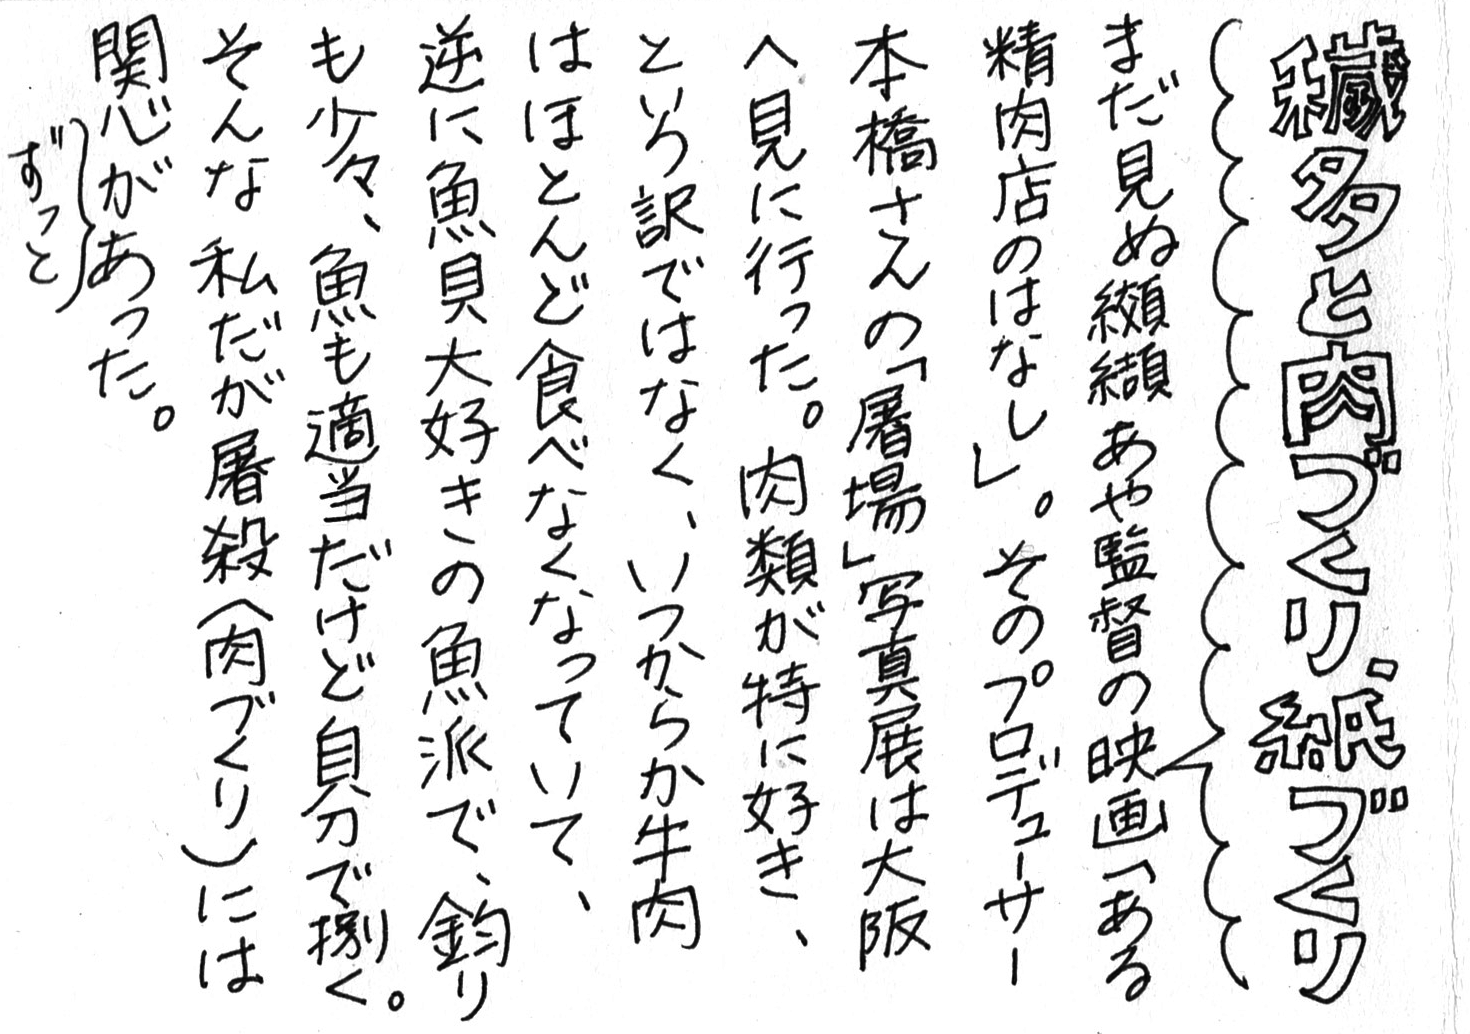 穢多と肉づくり、紙づくり
まだ見ぬ纐纈あや監督の映画「ある
精肉店のはなし」。そのプロデューサー
本橋さんの「屠場」写真展は大阪
へ見に行った。肉類が特に好き、
という訳ではなく、いつからか牛肉
はほとんど食べなくなっていて、
逆に魚貝大好きの魚派で、釣り
も少々、魚も適当だけど自分で捌く。
そんな私だが屠殺(肉づくり)には
関心があった。
ずっと